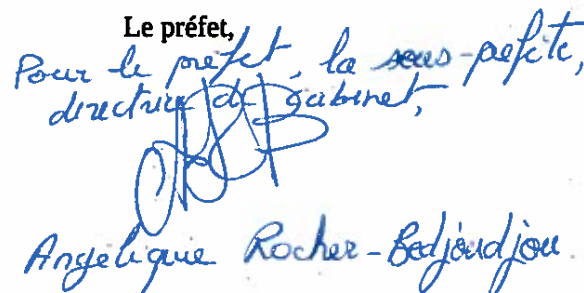 Le préfet,
Pour le préfet, la sous-préfète,
directrice de cabinet,
Angelique Rocher-Bedjoudjou